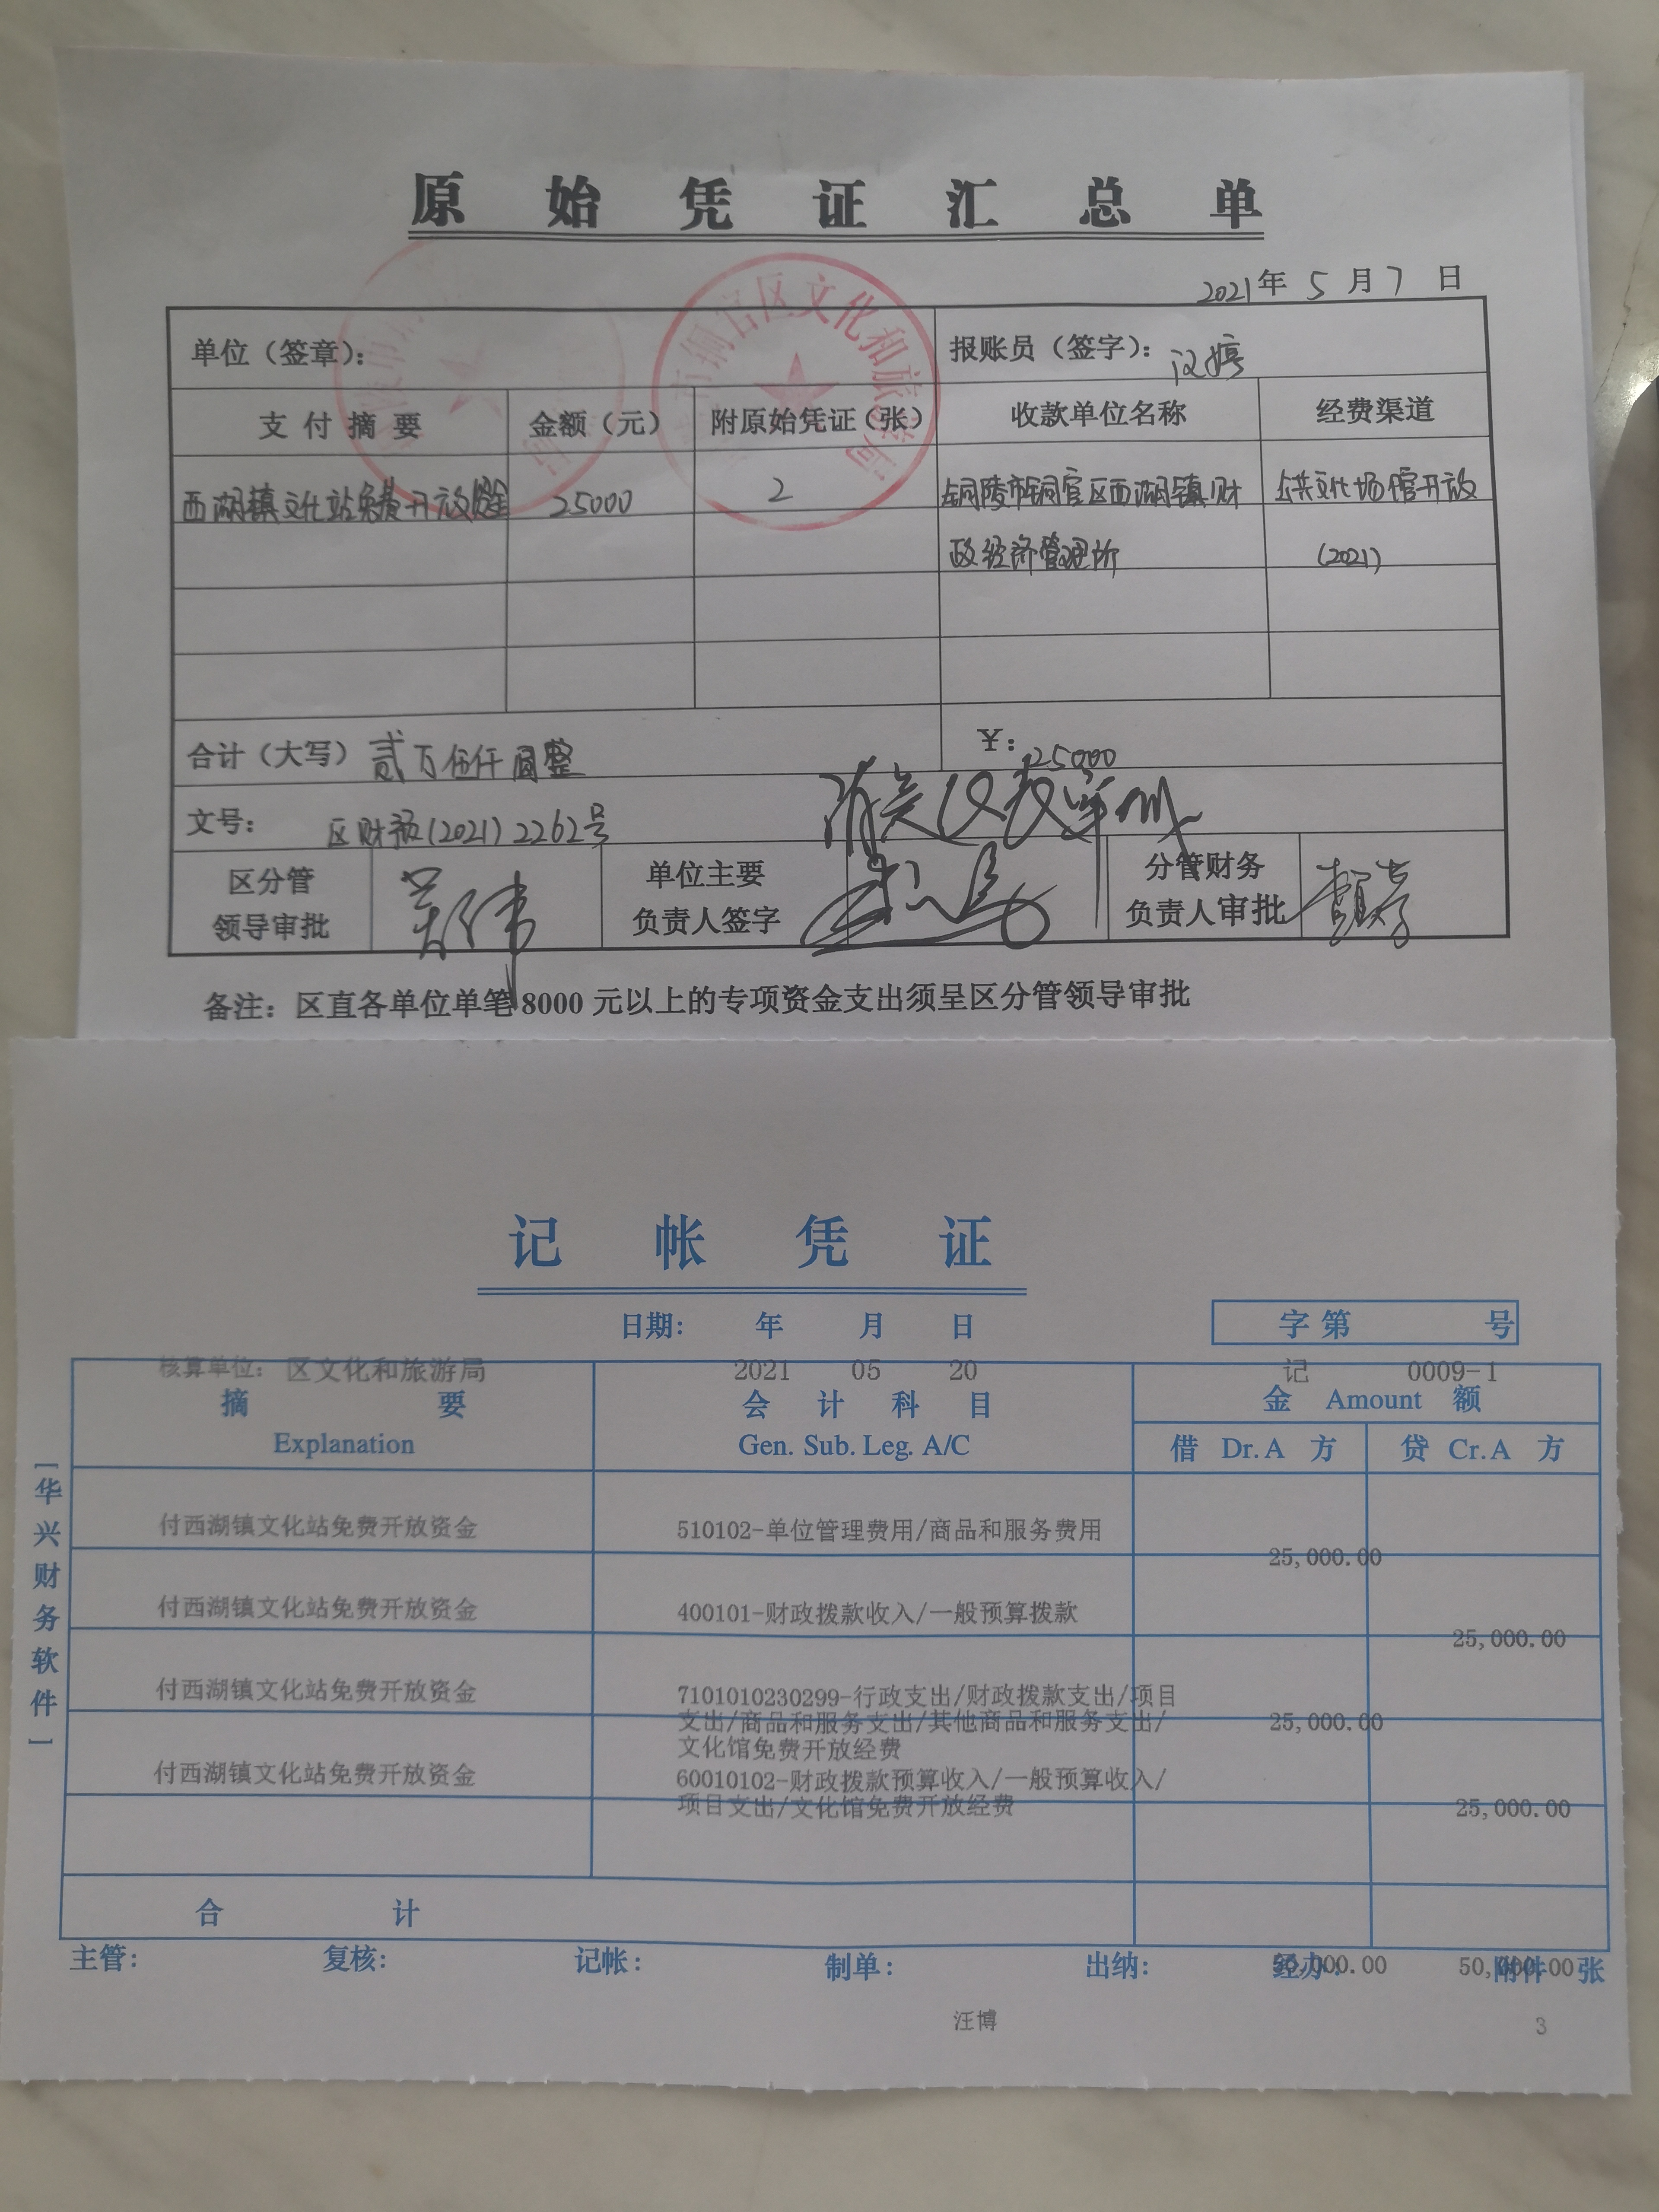 原始凭证汇总单
2021年 5 月 7 日
单位（签章）： 报账员（签字）：
支付摘要 金额（元） 附原始凭证（张） 收款单位名称 经费渠道
西湖镇文化站免费开放资金 25000 2 铜陵市铜官区西湖镇财 公共文化场馆开放
政经济管理所 (2021)
合计（大写） 贰万伍仟圆整 ¥：25000
文号： 区财预(2021)2262号
区分管 单位主要 分管财务
领导审批 负责人签字 负责人审批
备注：区直各单位单笔8000元以上的专项资金支出须呈区分管领导审批
铜官区文化和旅游局
记帐凭证
日期： 年 月 日 字第 号
核算单位：区文化和旅游局 2021 05 20 记 0009-1
摘要 会计科目 金 Amount 额
Explanation Gen. Sub. Leg. A/C 借 Dr.A 方 贷 Cr.A 方
付西湖镇文化站免费开放资金 510102-单位管理费用/商品和服务费用 25,000.00
付西湖镇文化站免费开放资金 400101-财政拨款收入/一般预算拨款 25,000.00
付西湖镇文化站免费开放资金 7101010230299-行政支出/财政拨款支出/项目
支出/商品和服务支出/其他商品和服务支出/ 25,000.00
文化馆免费开放经费
付西湖镇文化站免费开放资金 60010102-财政拨款预算收入/一般预算收入/
项目支出/文化馆免费开放经费 25,000.00
合计
主管： 复核： 记帐： 制单： 出纳： 经办： 附件 张
50,000.00 50,000.00
汪博 3
[华兴财务软件]